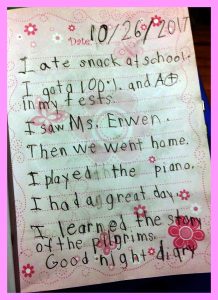 Date: 10/26/2017
I ate snack at school.
I got a 10p.t. and A+
in my tests.
I saw Ms. Erwen.
Then we went home.
I played the piano.
I had a great day.
I learned the story
of the pilgrims.
Good night diary